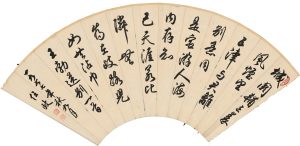 城
闕輔三秦
風煙望
五津與君離
別意同
是宦游人海
内存知
己天涯若比
鄰無
為在歧路兒
女共沾巾
王勃送別一首